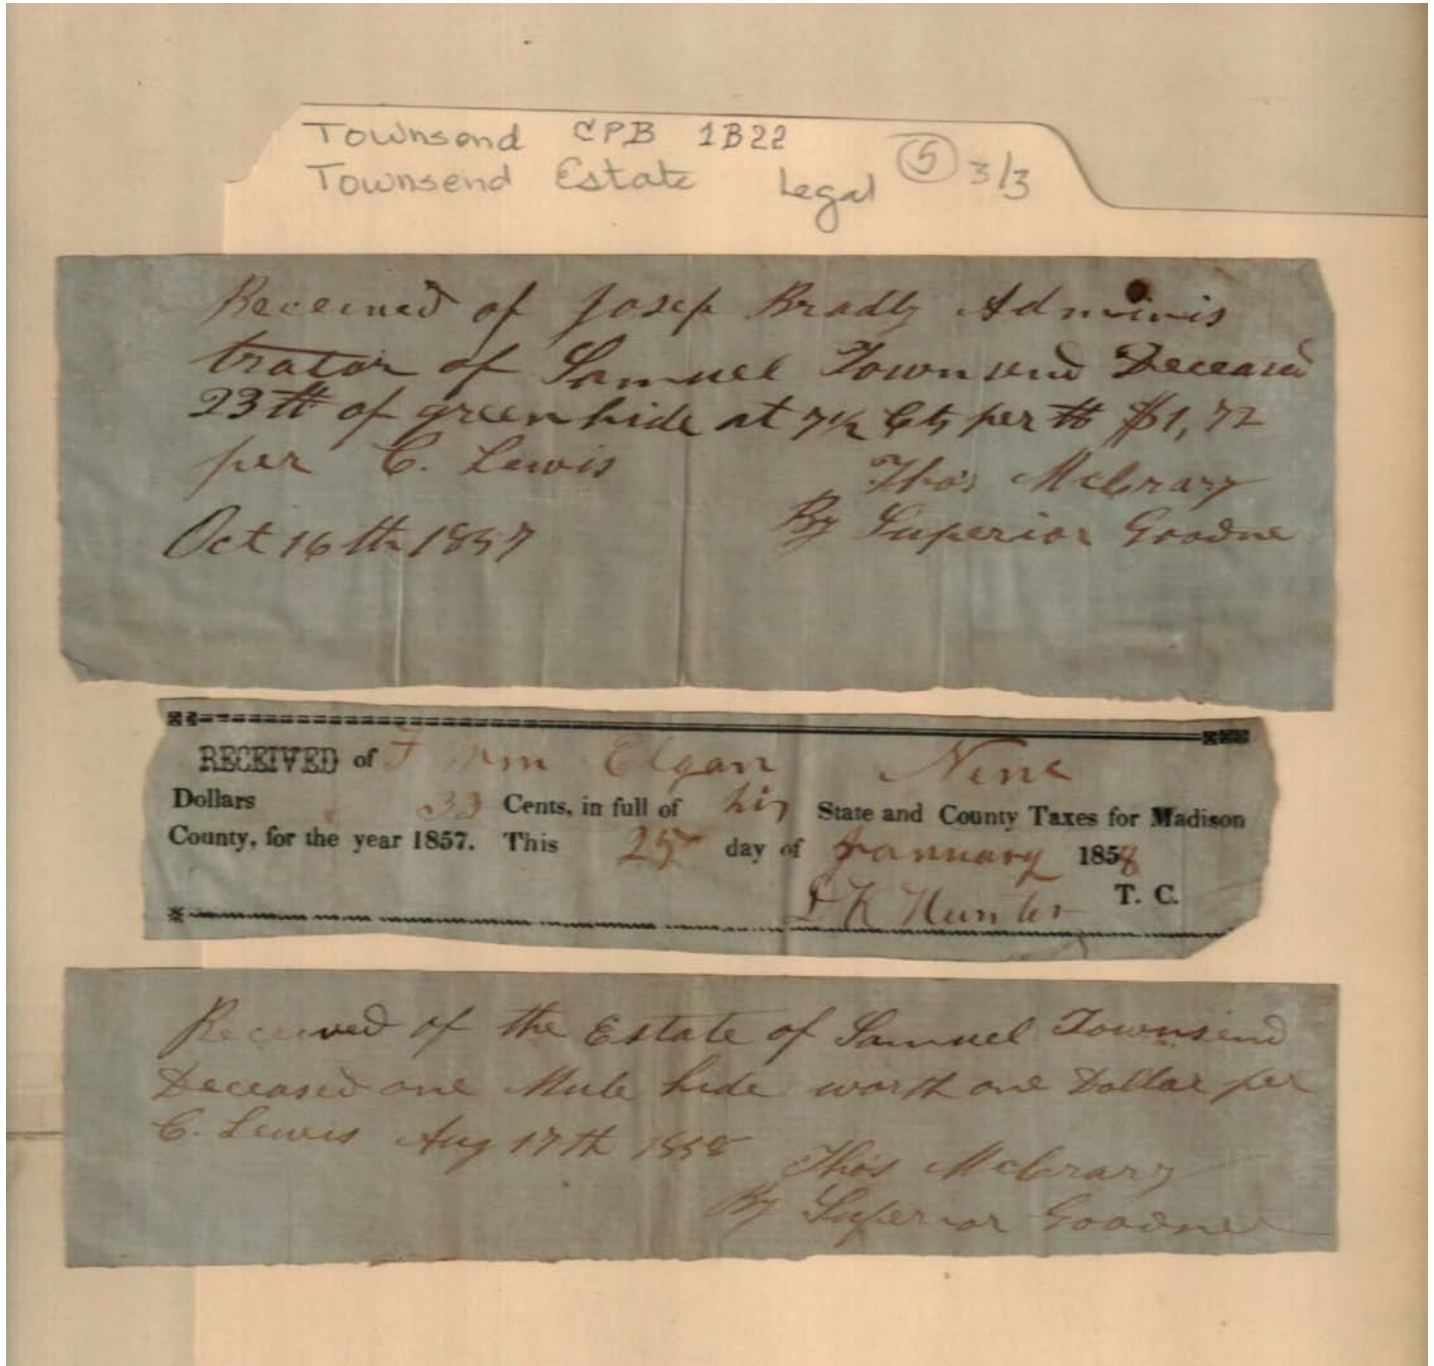 Townsend CPB 1B22
Townsend Estate Legal 5 3/3
Received of Josep Bradly Adminis
trator of Samuel Townsend Deceased
23 ℔ of green hide at 7½ Cts per ℔ $1,72
per C. Lewis Thos McCrary
By Superior Goodne
Oct 16th 1857
RECEIVED of Elgan Nine
Dollars 33 Cents, in full of his State and County Taxes for Madison
County, for the year 1857. This 25 day of January 1858
K Hunter T. C.
Received of the Estate of Samuel Townsend
Deceased one Mule hide worth one Dollar per
C. Lewis Aug 17th 1858
Thos McCrary
By Superior Goodner